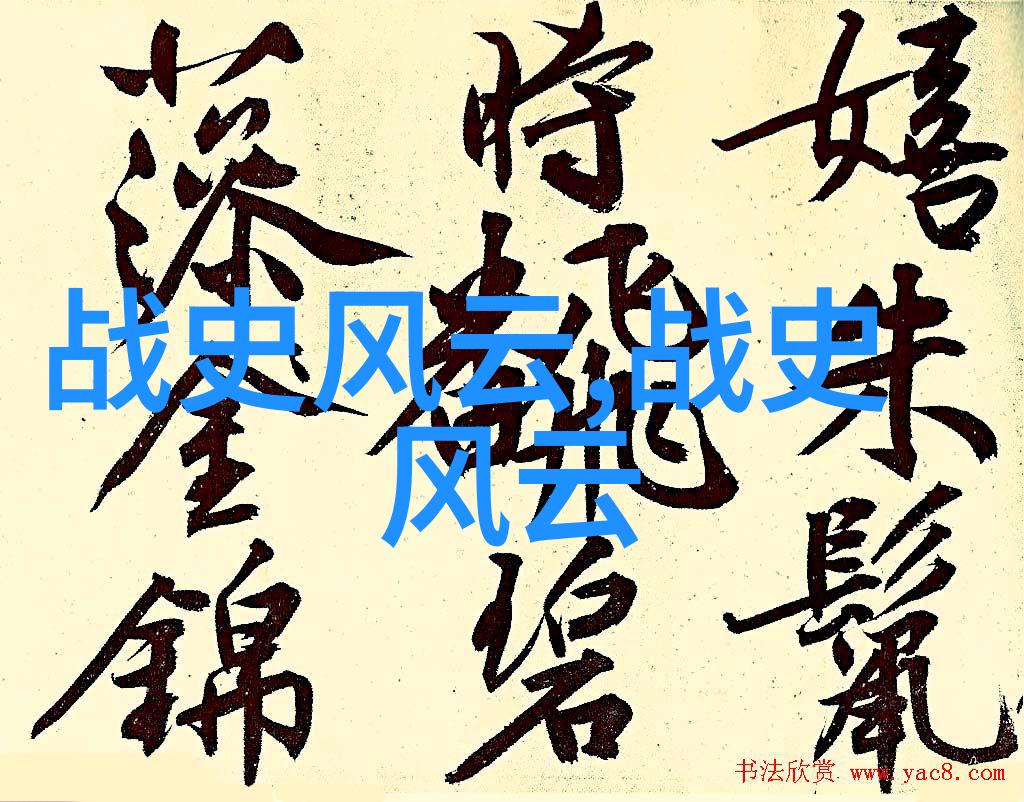 嬉朱鬣
時碧
錦
战史风云,战史
风云
书法欣赏 www.yac8.com